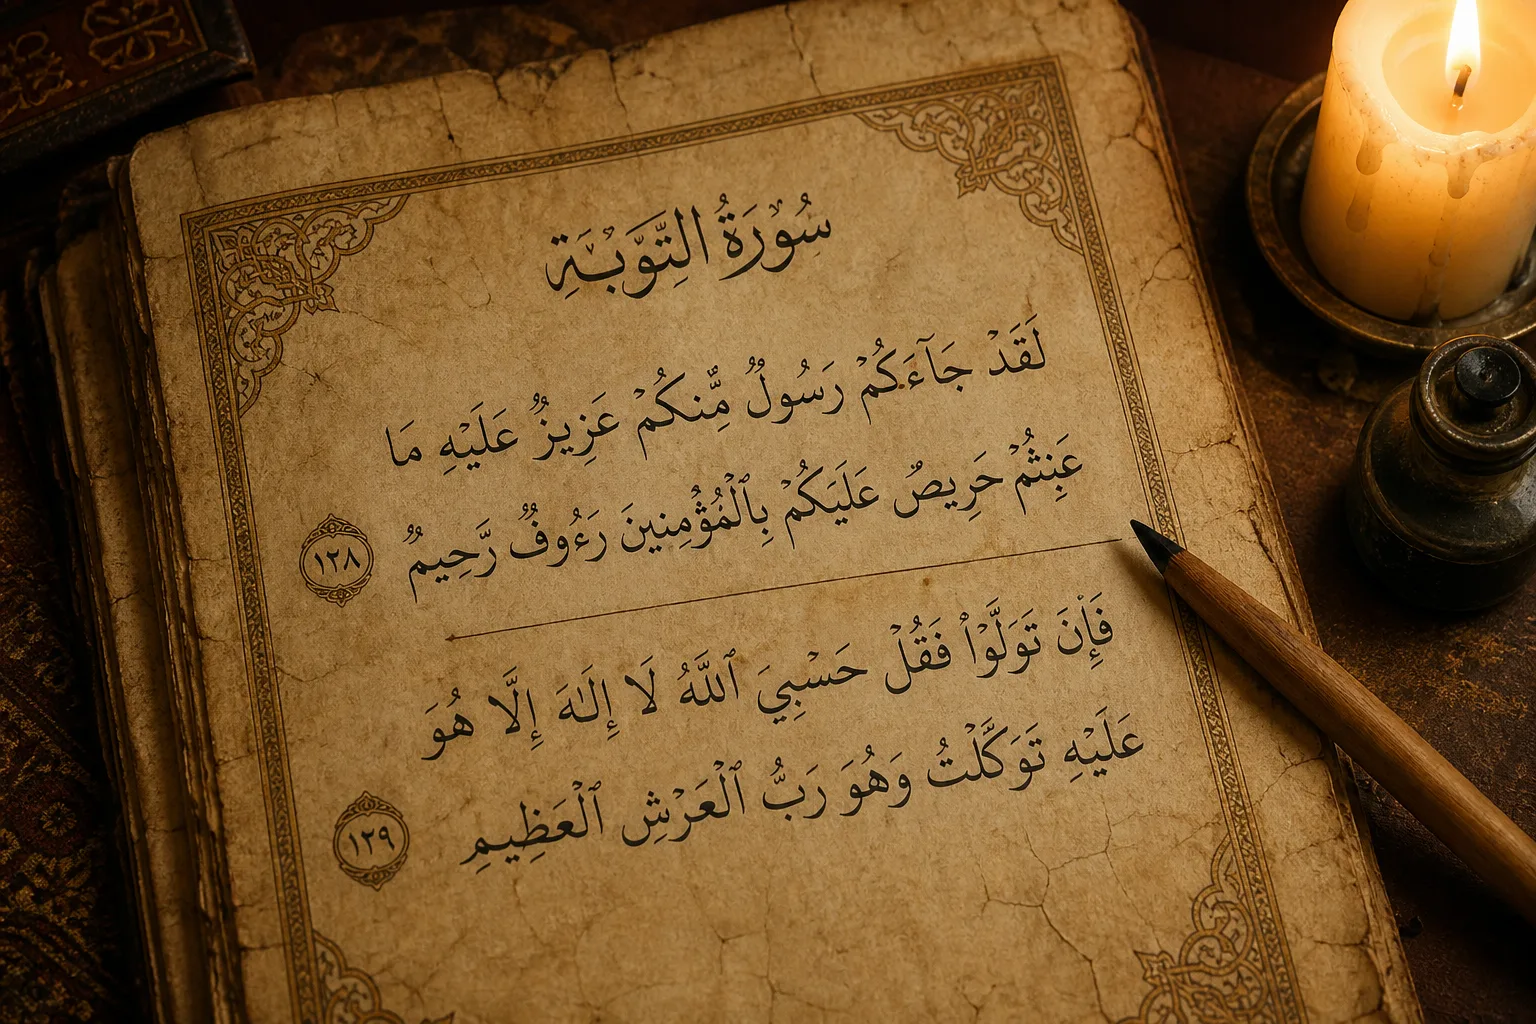 سُوْرَةُ التَّوْبَةِ
لَقَدْ جَآءَكُمْ رَسُولٌ مِّنكُمْ عَزِيزٌ عَلَيْهِ مَا
عَنِتُّمْ حَرِيصٌ عَلَيْكُمْ بِٱلْمُؤْمِنِينَ رَءُوفٌ رَّحِيمٌ ١٢٨
فَإِنْ تَوَلَّوْا۟ فَقُلْ حَسْبِيَ ٱللَّهُ لَا إِلَـٰهَ إِلَّا هُوَ
عَلَيْهِ تَوَكَّلْتُ وَهُوَ رَبُّ ٱلْعَرْشِ ٱلْعَظِيمِ ١٢٩